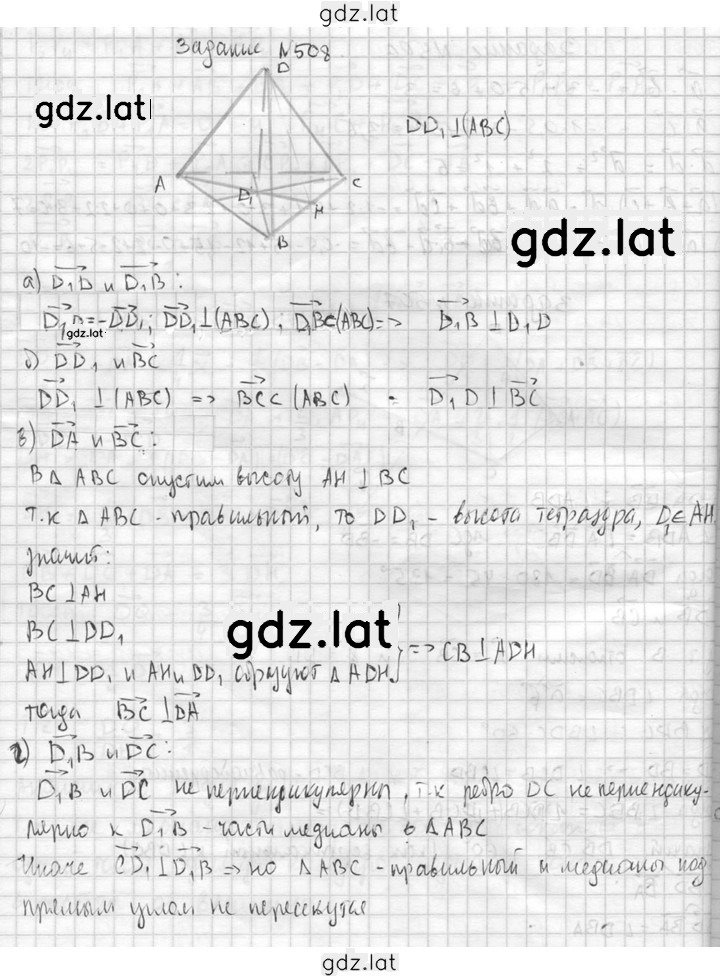 gdz.lat
Задание №508
D
gdz.lat
DD₁⊥(ABC)
A
D₁
C
H
B
gdz.lat
а) D₁D и D₁B :
D₁D=-DD₁; DD₁⊥(ABC); D₁B⊂(ABC)=> D₁B⊥D₁D
gdz.lat
б) DD₁ и BC
DD₁⊥(ABC) => BC⊂(ABC) D₁D⊥BC
в) DA и BC:
В△ABC опустим высоту AH⊥BC
т.к △ABC - правильный, то DD₁ - высота тетраэдра, D₁∈AH
значит:
BC⊥AH
BC⊥DD₁
gdz.lat
AH⊥DD₁ и AH и DD₁ образуют △ADH } => CB⊥ADH
тогда BC⊥DA
г) D₁B и DC:
D₁B и DC не перпендикулярны, т.к ребро DC не перпендику-
лярно к D₁B - части медианы в △ABC
Иначе CD₁⊥D₁B => но △ABC - правильный и медианы под
прямым углом не пересекутся
gdz.lat